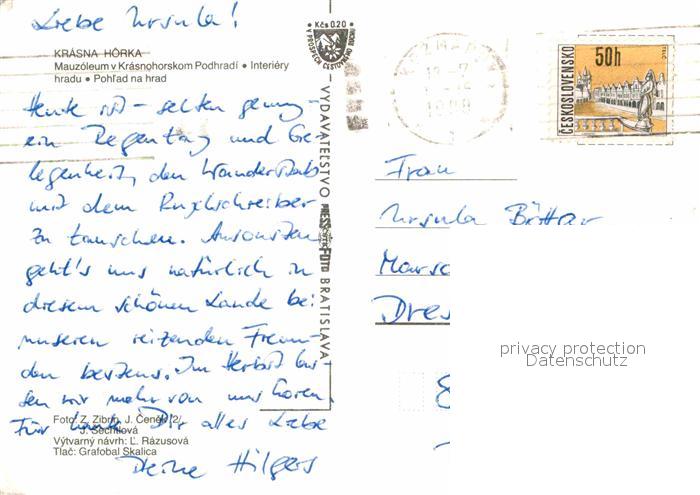 Liebe Ursula!
Kčs 0.20
V PROSPECH CESTOVNÉHO RUCHU
KRÁSNA HÔRKA
Mauzóleum v Krásnohorskom Podhradí • Interiéry
hradu • Pohľad na hrad
Heute ist – selten genug –
ein Regentag und Ge-
legenheit, den Wanderstab
mit dem Kugelschreiber
zu tauschen. Ansonsten
geht's uns natürlich in
diesem schönen Lande bei
unseren reizenden Freun-
den bestens. Im Herbst las-
sen wir mehr von uns hören.
Für heute Dir alles Liebe
Deine Hilgers
Foto: Z. Zibrín, J. Čeněk /2/,
J. Šechtlová
Výtvarný návrh: Ľ. Rázusová
Tlač: Grafobal Skalica
VYDAVATEĽSTVO PRESSFOTO BRATISLAVA
ČESKOSLOVENSKO
50h
TELČ
Frau
Ursula
Dres
privacy protection
Datenschutz